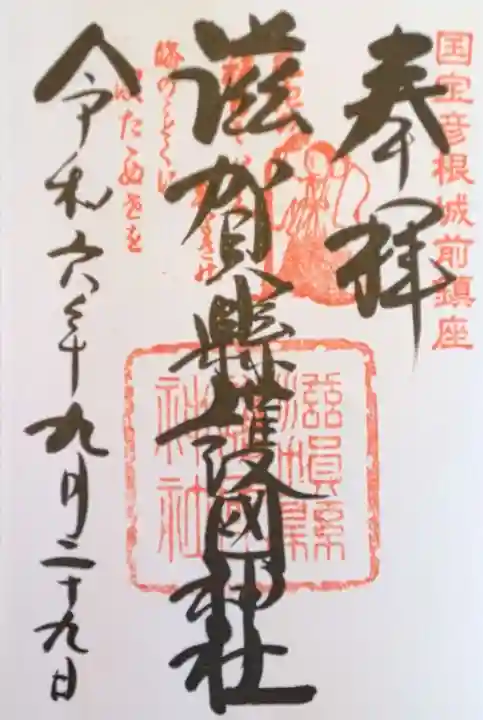 国宝彦根城前鎮座
奉拝
滋賀縣護國神社
滋賀縣
護國
神社
令和六年九月二十九日